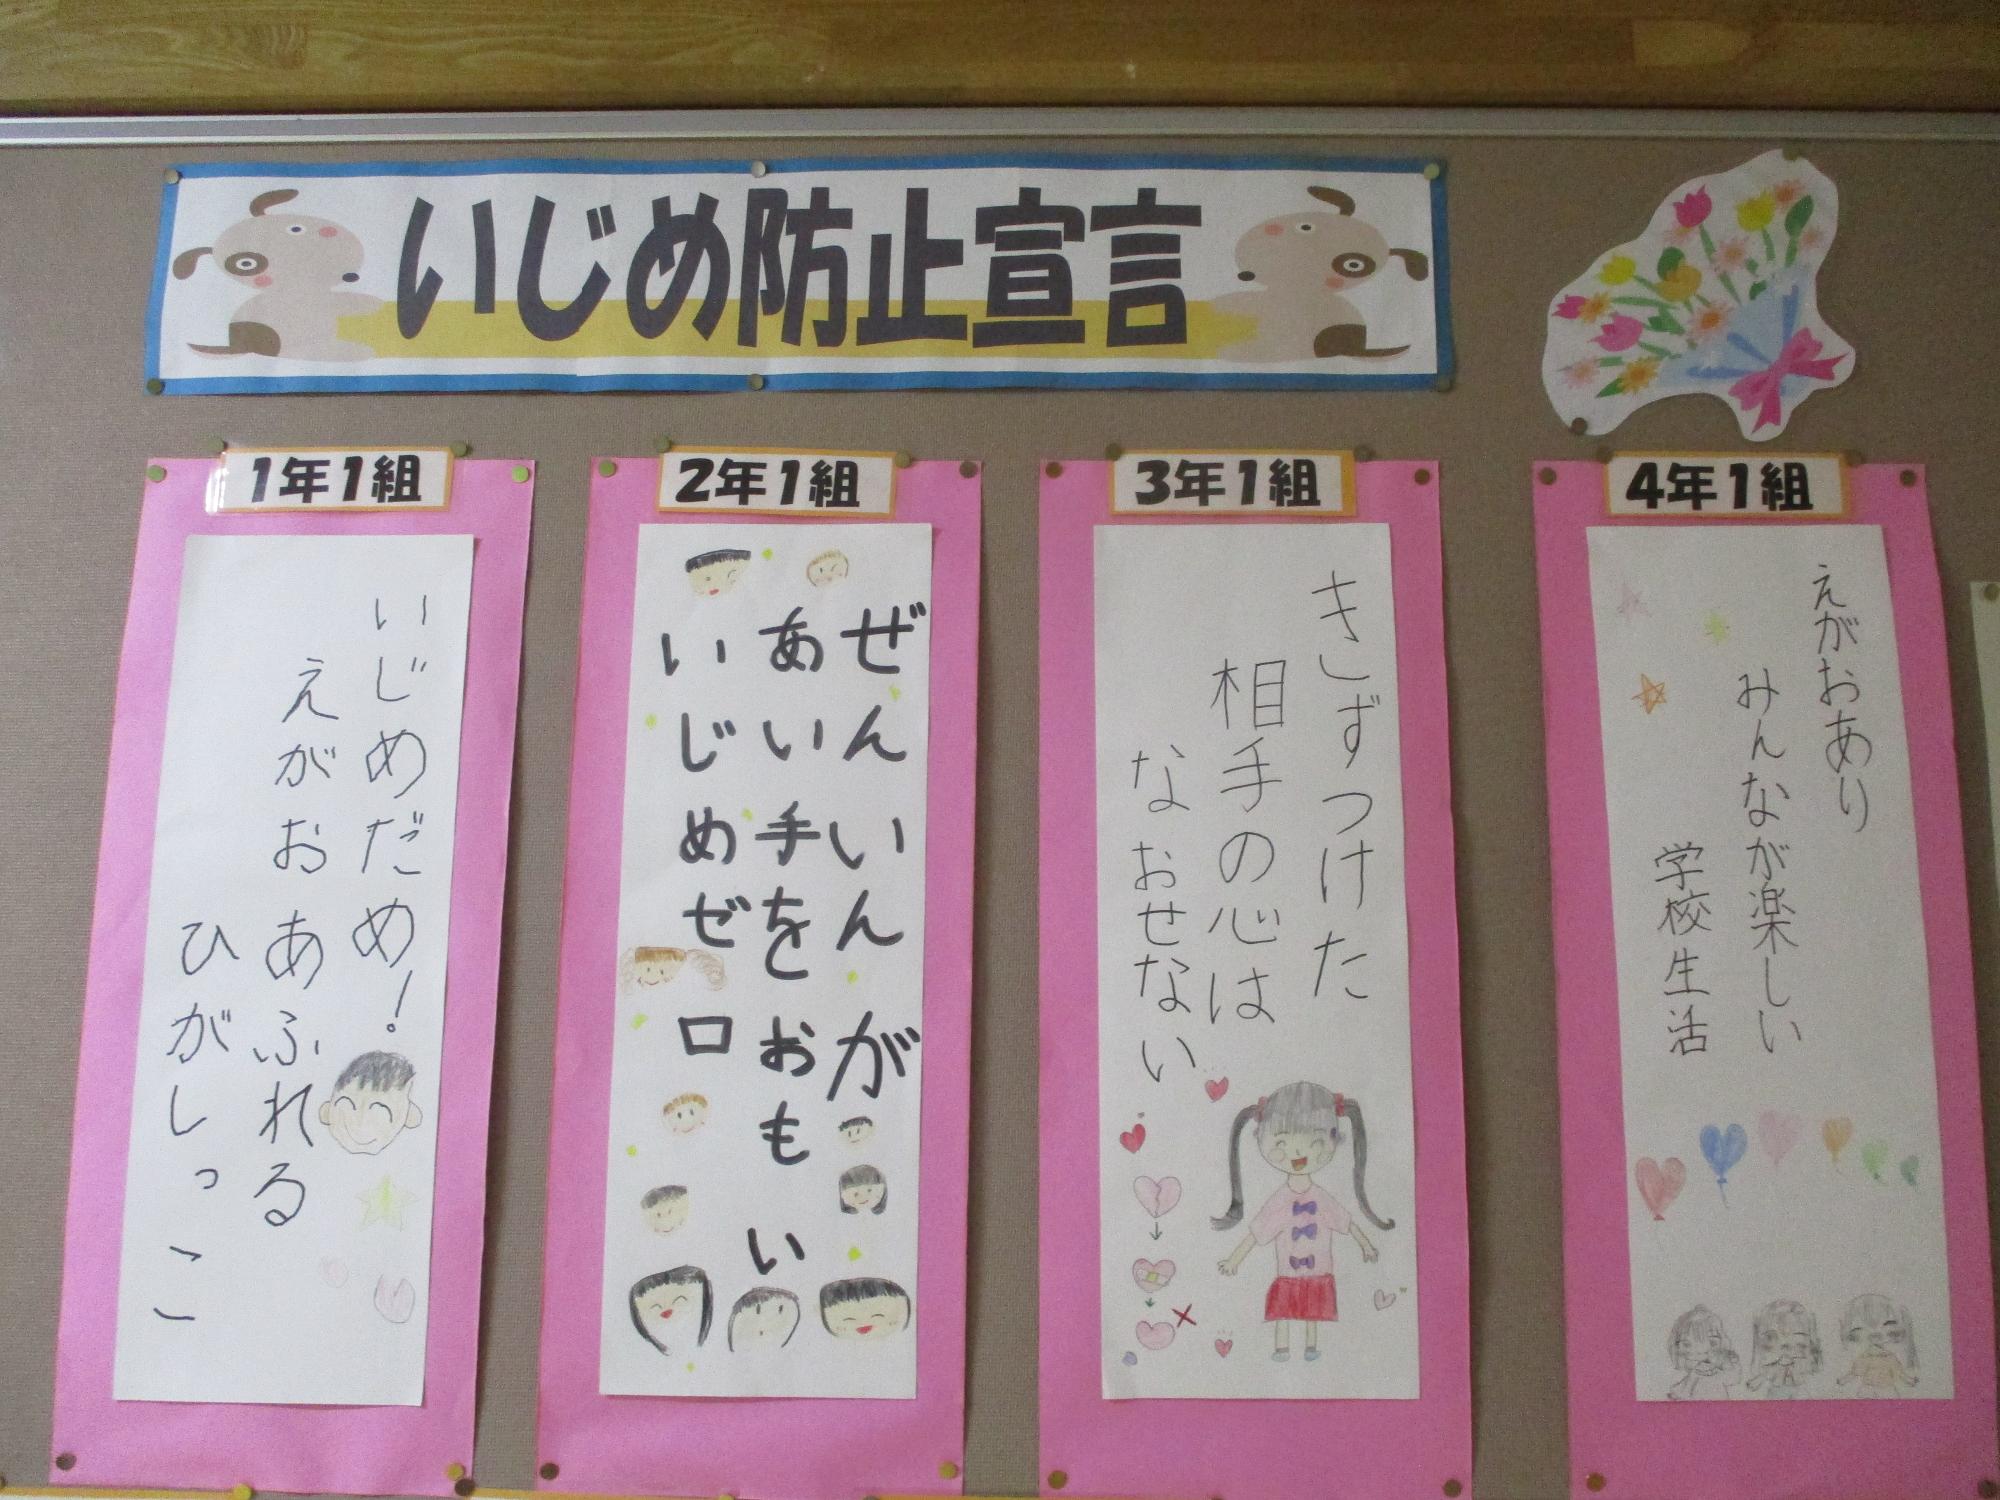 いじめ防止宣言
1年1組
いじめだめ!
えがおあふれる
ひがしっこ
2年1組
ぜんいんが
あい手をおもい
いじめゼロ
3年1組
きずつけた
相手の心は
なおせない
4年1組
えがおあり
みんなが楽しい
学校生活